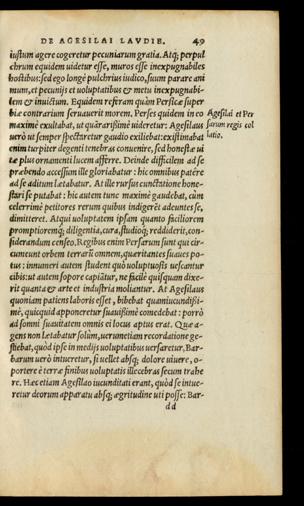 DE AGESILAI LAVDIE. 49
iustum agere cogeretur pecuniarum gratia. Atq; perpul
chrum equidem uidetur esse, muros esse inexpugnabiles
hostibus: sed ego longè pulchrius iudico, suum parare ani
mum, et pecunijs et uoluptatibus & metu inexpugnabi-
lem & inuictum. Equidem referam quàm Persicæ super
biæ contrarium seruauerit morem. Perses quidem in eo
maximè exultabat, ut quàrarißimè uideretur: Agesilaus
uerò ut semper spectaretur gaudio exiliebat: existimabat
enim turpiter degenti tenebras conuenire, sed honestæ ui
tæ plus ornamenti lucem afferre. Deinde difficilem ad se
præbendo accessum ille gloriabatur: hic omnibus patêre
ad se aditum lætabatur. At ille rursus cunctatione hone-
stari se putabat: hic autem tunc maximè gaudebat, cùm
celerrimè petitores rerum quibus indigerêt adeuntes se,
dimitteret. Atqui uoluptatem ipsam quanto faciliorem
promptioremq; diligentia, cura, studioq; reddiderit, con-
siderandum censeo. Regibus enim Persarum sunt qui cir-
cumeunt orbem terrarũ omnem, quæritantes suaues po-
tus: innumeri autem student quò uoluptuosis uescantur
cibis: ut autem sopore capiãtur, ne facilè quisquam dixe-
rit quanta & arte et industria moliantur. At Agesilaus
quoniam patiens laboris esset, bibebat quamiucundißi-
mè, quicquid apponeretur suauißimè comedebat: porrò
ad somni suauitatem omnis ei locus aptus erat. Quæ a-
gens non lætabatur solùm, uerumetiam recordatione ge-
stiebat, quòd ipse in medijs uoluptatibus uersaretur. Bar-
barum uerò intueretur, si uellet absq; dolore uiuere, o-
portere è terræ finibus uoluptatis illecebras secum trahe
re. Hæc etiam Agesilao iucunditati erant, quòd se intue-
retur deorum apparatu absq; ægritudine uti posse: Bar-
dd
Agesilai et Per
sarum regis col
latio.